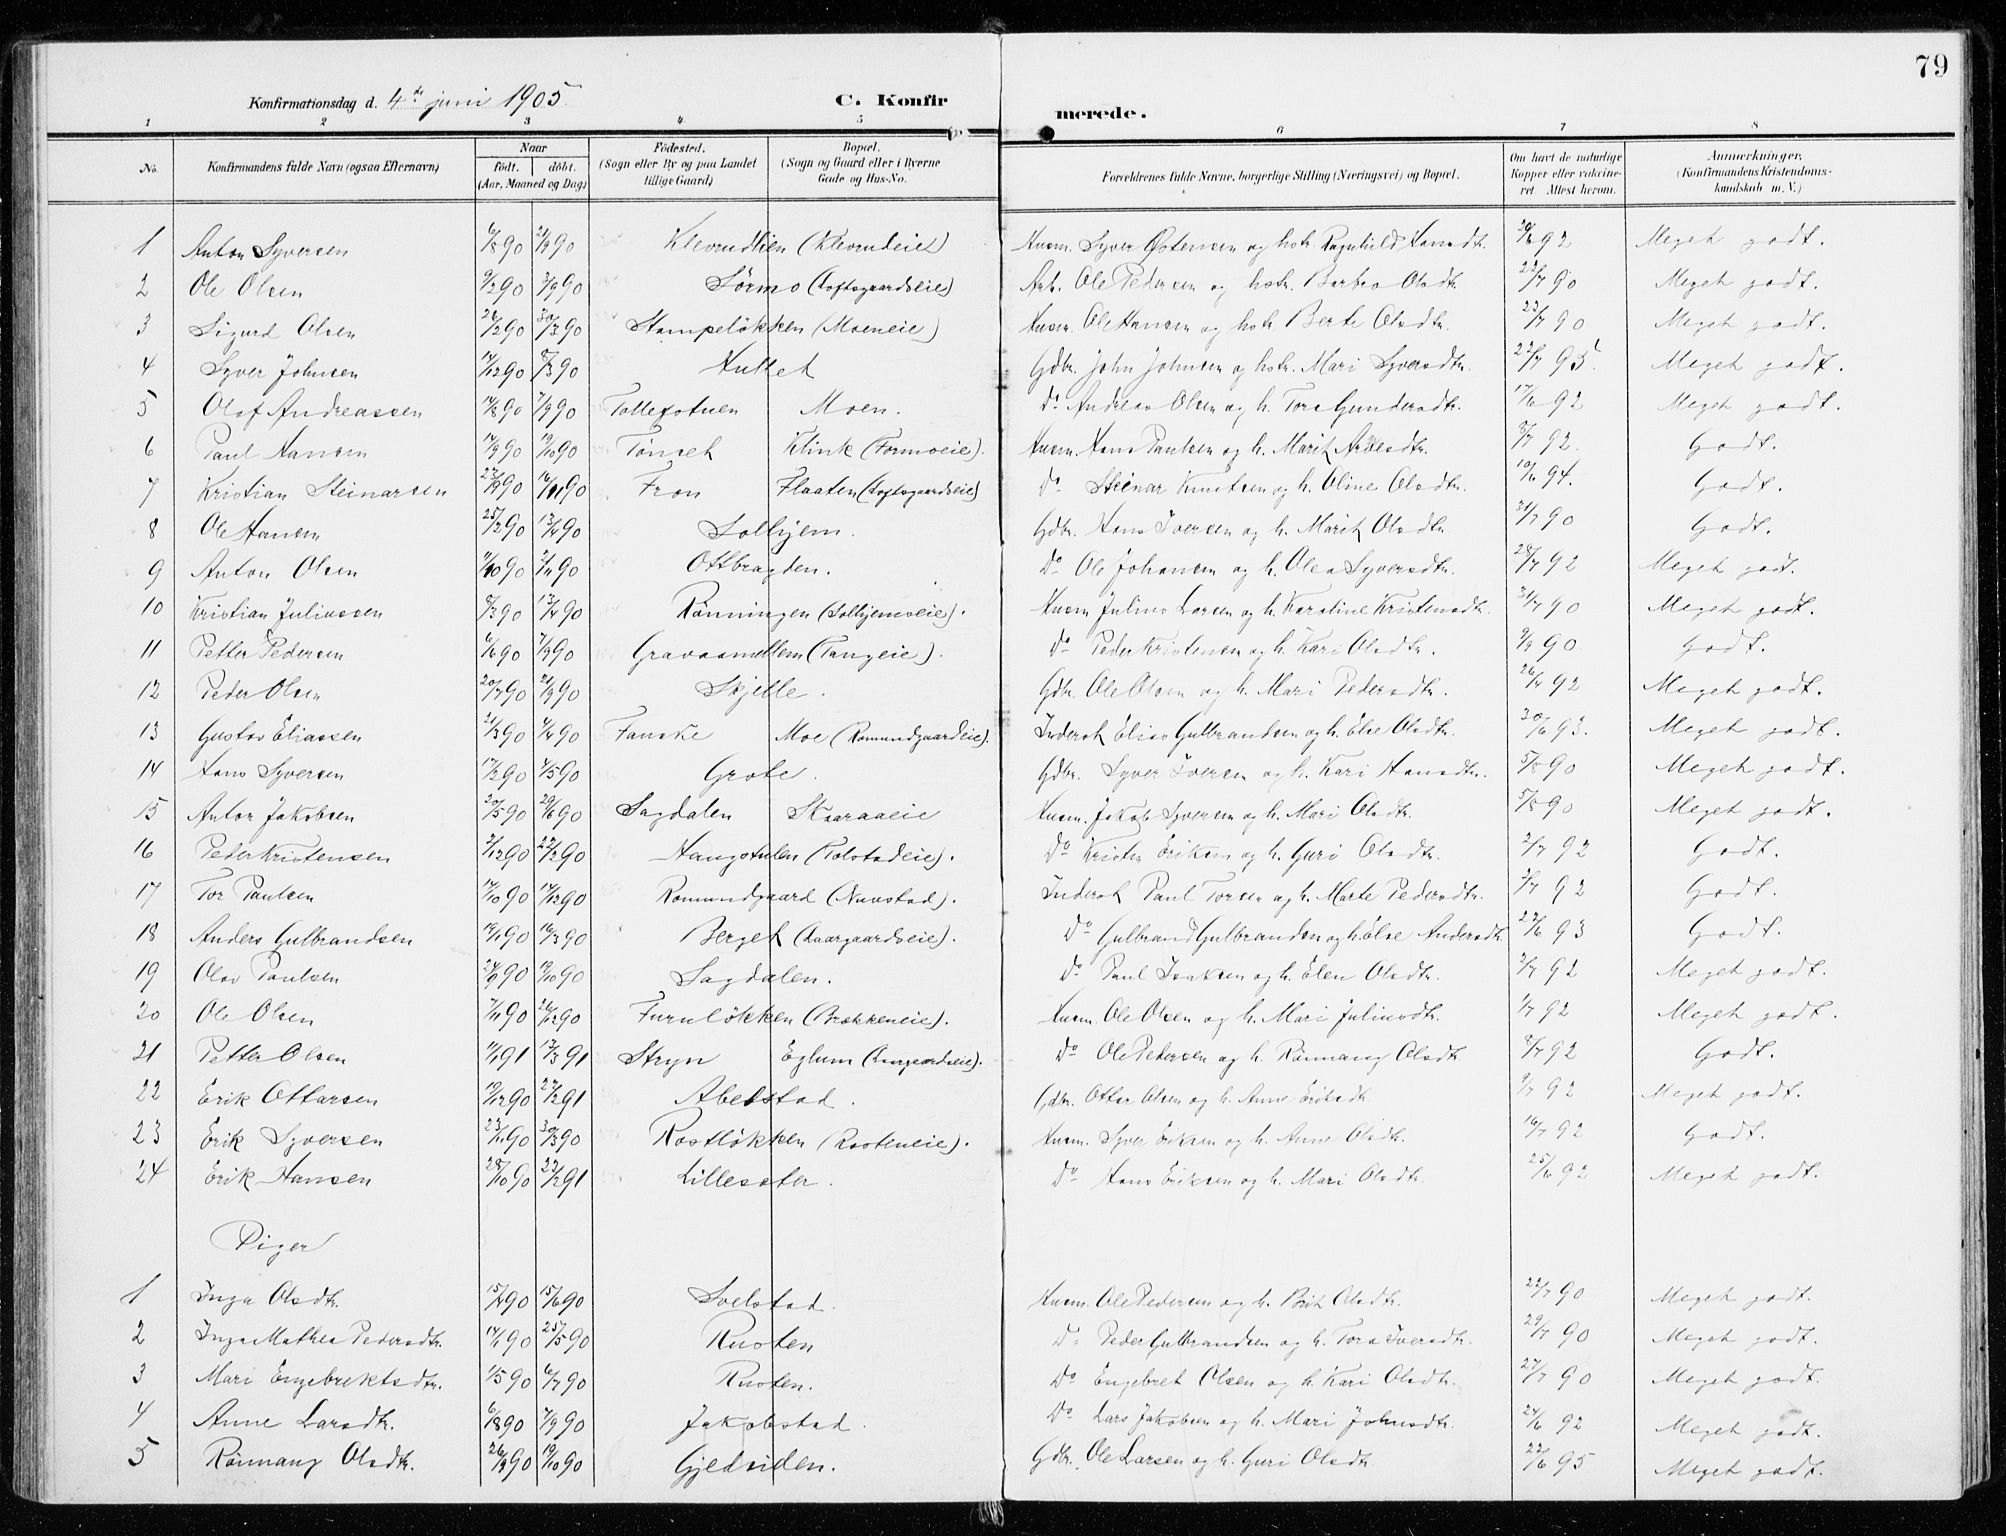 79
Konfirmationsdag d. 4de juni 1905. C. Konfirmerede.
1 2 3 4 5 6 7 8
No. Konfirmandens fulde Navn (ogsaa Efternavn) Naar født. døbt. (Aar, Maaned og Dag) Fødested. (Sogn eller By og paa Landet tillige Gaard) Bopæl. (Sogn og Gaard eller i Byerne Gade og Hus-No. Forældrenes fulde Navne, borgerlige Stilling (Næringsvei) og Bopæl. Om havt de naturlige Kopper eller vaccineret Attest herom. Anmærkninger, (Konfirmandens Kristendomskundskab m. V.)
1 Anton Syversen 6/8 90 21/9 90 Klevrudlien (Klevrudeie) Husm. Syver Østensen og hstr. Ragnhild Hansdtr. 92 Meget godt.
2 Ole Olsen 9/2 90 3/9 90 Sørmo (Loftsgaardseie) Arb. Ole Pedersen og hstr. Barbra Olsdtr 23/7 90 Meget godt.
3 Sigurd Olsen 26/2 90 30/3 90 Stampeløkken (Moeneie) Husm. Ole Hansen og hstr. Berte Olsdtr. 23/7 90 Meget godt.
4 Syver Johnsen 14/12 90 8/3 90 Hullet Gdbr. John Johnsen og hstr. Mari Syversdtr. 22/7 95 Meget godt.
5 Olaf Andreassen 14/8 90 7/9 90 Tollefstuen Moen. Do Andreas Olsen og h. Tora Gundersdtr. 17/6 92 Meget godt.
6 Paul Hansen 14/9 90 19/10 90 Tønset Klink (Formoeie). Husm. Hans Paulsen og h. Marit 8/7 92. Godt.
7 Kristian Steinarsen 23/9 90 16/11 90 Fron Flaaten (Loftsgaardseie) Do Steinar Knutsen og h. Oline Olsdtr. 10/6 94. Godt.
8 Ole Hansen 25/2 90 13/4 90 Solhjem. Gdbr. Hans Iversen og h. Marit Olsdtr 31/7 90 Godt.
9 Anton Olsen 11/10 90 2/11 90 Ottbragden. Do Ole Johansen og h. Olea Syversdtr. 28/7 92 Meget godt.
10 Kristian Juliussen 8/3 90 13/4 90 Rønningen (Solhjemseie). Husm Julius Larsen og h. Karoline Kristensdtr. 31/7 90 Meget godt.
11 Petter Pedersen 6/6 90 7/9 90 Gravaamellem (Tangeie). Do Peder Kristensen og h. Kari Olsdtr. 9/9 90. Godt.
12 Peder Olsen 20/7 90 21/9 90 Skjelle. Gdbr. Ole Olsen og h. Mari Pedersdtr. 26/4 92 Meget godt.
13 Gustav Eliassen 21/3 90 4/4 90 Fauske Moe (Romundgaardeie). Inderst Elias Gulbrandsen og h. Else Olsdtr. 30/6 93. Meget godt.
14 Hans Syversen 17/2 90 4/5 90 Grote. Gdbr. Syver Iversen og h. Kari Hansdtr. 5/8 90 Meget godt.
15 Anton Jakobsen 20/5 90 29/6 90 Sagdalen Skaaraaeie Husm. Jakob Syversen og h. Mari Olsdtr. 5/8 90 Meget godt.
16 Peder Kristensen 2/12 90 22/2 90 Haugstulen (Tolstadeie). Do Kristen Eriksen og h. Guri Olsdtr. 2/7 92 Godt.
17 Tor Paulsen 14/10 90 14/12 90 Romundgaard (Nustad). Inderst Paul Torsen og h. Marte Pedersdtr. 2/7 92 Godt.
18 Anders Gulbrandsen 19/1 90 16/3 90 Berget (Laargaardseie). Do Gulbrand Gulbrandsen og h. Else Andersdtr. 22/6 93 Godt.
19 Olav Paulsen 24/9 90 19/10 90 Sagdalen. Do Paul Isaksen og h. Elen Olsdtr. 2/7 92 Meget godt.
20 Ole Olsen 7/11 90 26/12 90 Furuløkken (Brækkeneie). Husm. Ole Olsen og h. Mari Juliusdtr. 1/7 92 Meget godt.
21 Petter Olsen 11/1 91 12/3 91 Stryn Eglum (Laargaardseie). Do Ole Pedersen og h. Rønnaug Olsdtr 8/7 92 Godt.
22 Erik Ottarsen 19/12 90 22/2 91 Abelstad. Gdbr. Ottar Olsen og h. Anne Eriksdtr 9/7 92 Meget godt.
23 Erik Syversen 23/11 90 30/3 90 Rostløkken (Rosteneie). Husm. Syver Eriksen og h. Anne Olsdtr. 16/7 92 Godt.
24 Erik Hansen 28/10 90 22/2 91 Lillesæter. Do Hans Eriksen og h. Mari Olsdtr. 25/6 92 Meget godt.
Piger
1 Inga Olsdtr. 15/4 90 15/6 90 Selstad. Husm. Ole Pedersen og h. Brit Olsdtr. 22/7 90 Meget godt.
2 Inga Mathea Pedersdtr. 14/1 90 25/5 90 Rusten Do Peder Gulbrandsen og h. Tora Iversdtr. 29/7 90 Meget godt.
3 Mari Engebrektsdtr. 1/5 90 6/7 90 Rusten. Do Engebret Olsen og h. Kari Olsdtr. 27/7 90 Meget godt.
4 Anne Larsdtr. 6/8 90 7/9 90 Jakobstad. Do Lars Jakobsen og h. Mari Johnsdtr. 24/6 92 Meget godt.
5 Rønnaug Olsdtr. 26/9 90 19/10 90 Gjedsiden. Gdbr. Ole Larsen og h. Guri Olsdtr. 22/6 95 Meget godt.